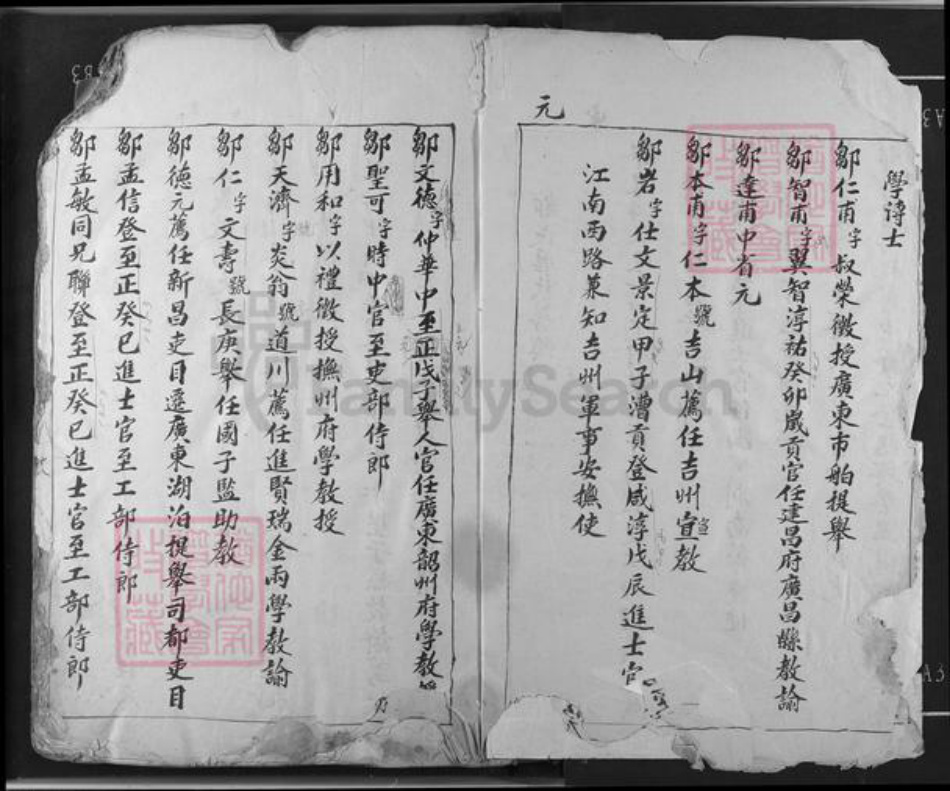 學諄士
鄒仁甫字叔榮徵授廣東市舶提舉
鄒智甫字翼智淳祐癸卯歲貢官任建昌府廣昌縣教諭
鄒達甫中省元
鄒本甫字仁本號吉山薦任吉州宣教
鄒岩字仕文景定甲子漕貢登咸淳戊辰進士官
江南西路兼知吉州軍事安撫使
元
鄒文德字仲華中至正戊子舉人官任廣東韶州府學教
鄒聖可字時中官至吏部侍郎
鄒用和字以禮徵授撫州府學教授
鄒天濟字炎翁號道川薦任進賢瑞金兩學教諭
鄒仁字文壽號長庚舉任國子監助教
鄒德元薦任新昌吏目遷廣東湖泊提舉司都吏目
鄒孟信登至正癸巳進士官至工部侍郎
鄒孟敏同兄聯登至正癸巳進士官至工部侍郎
FamilySearch